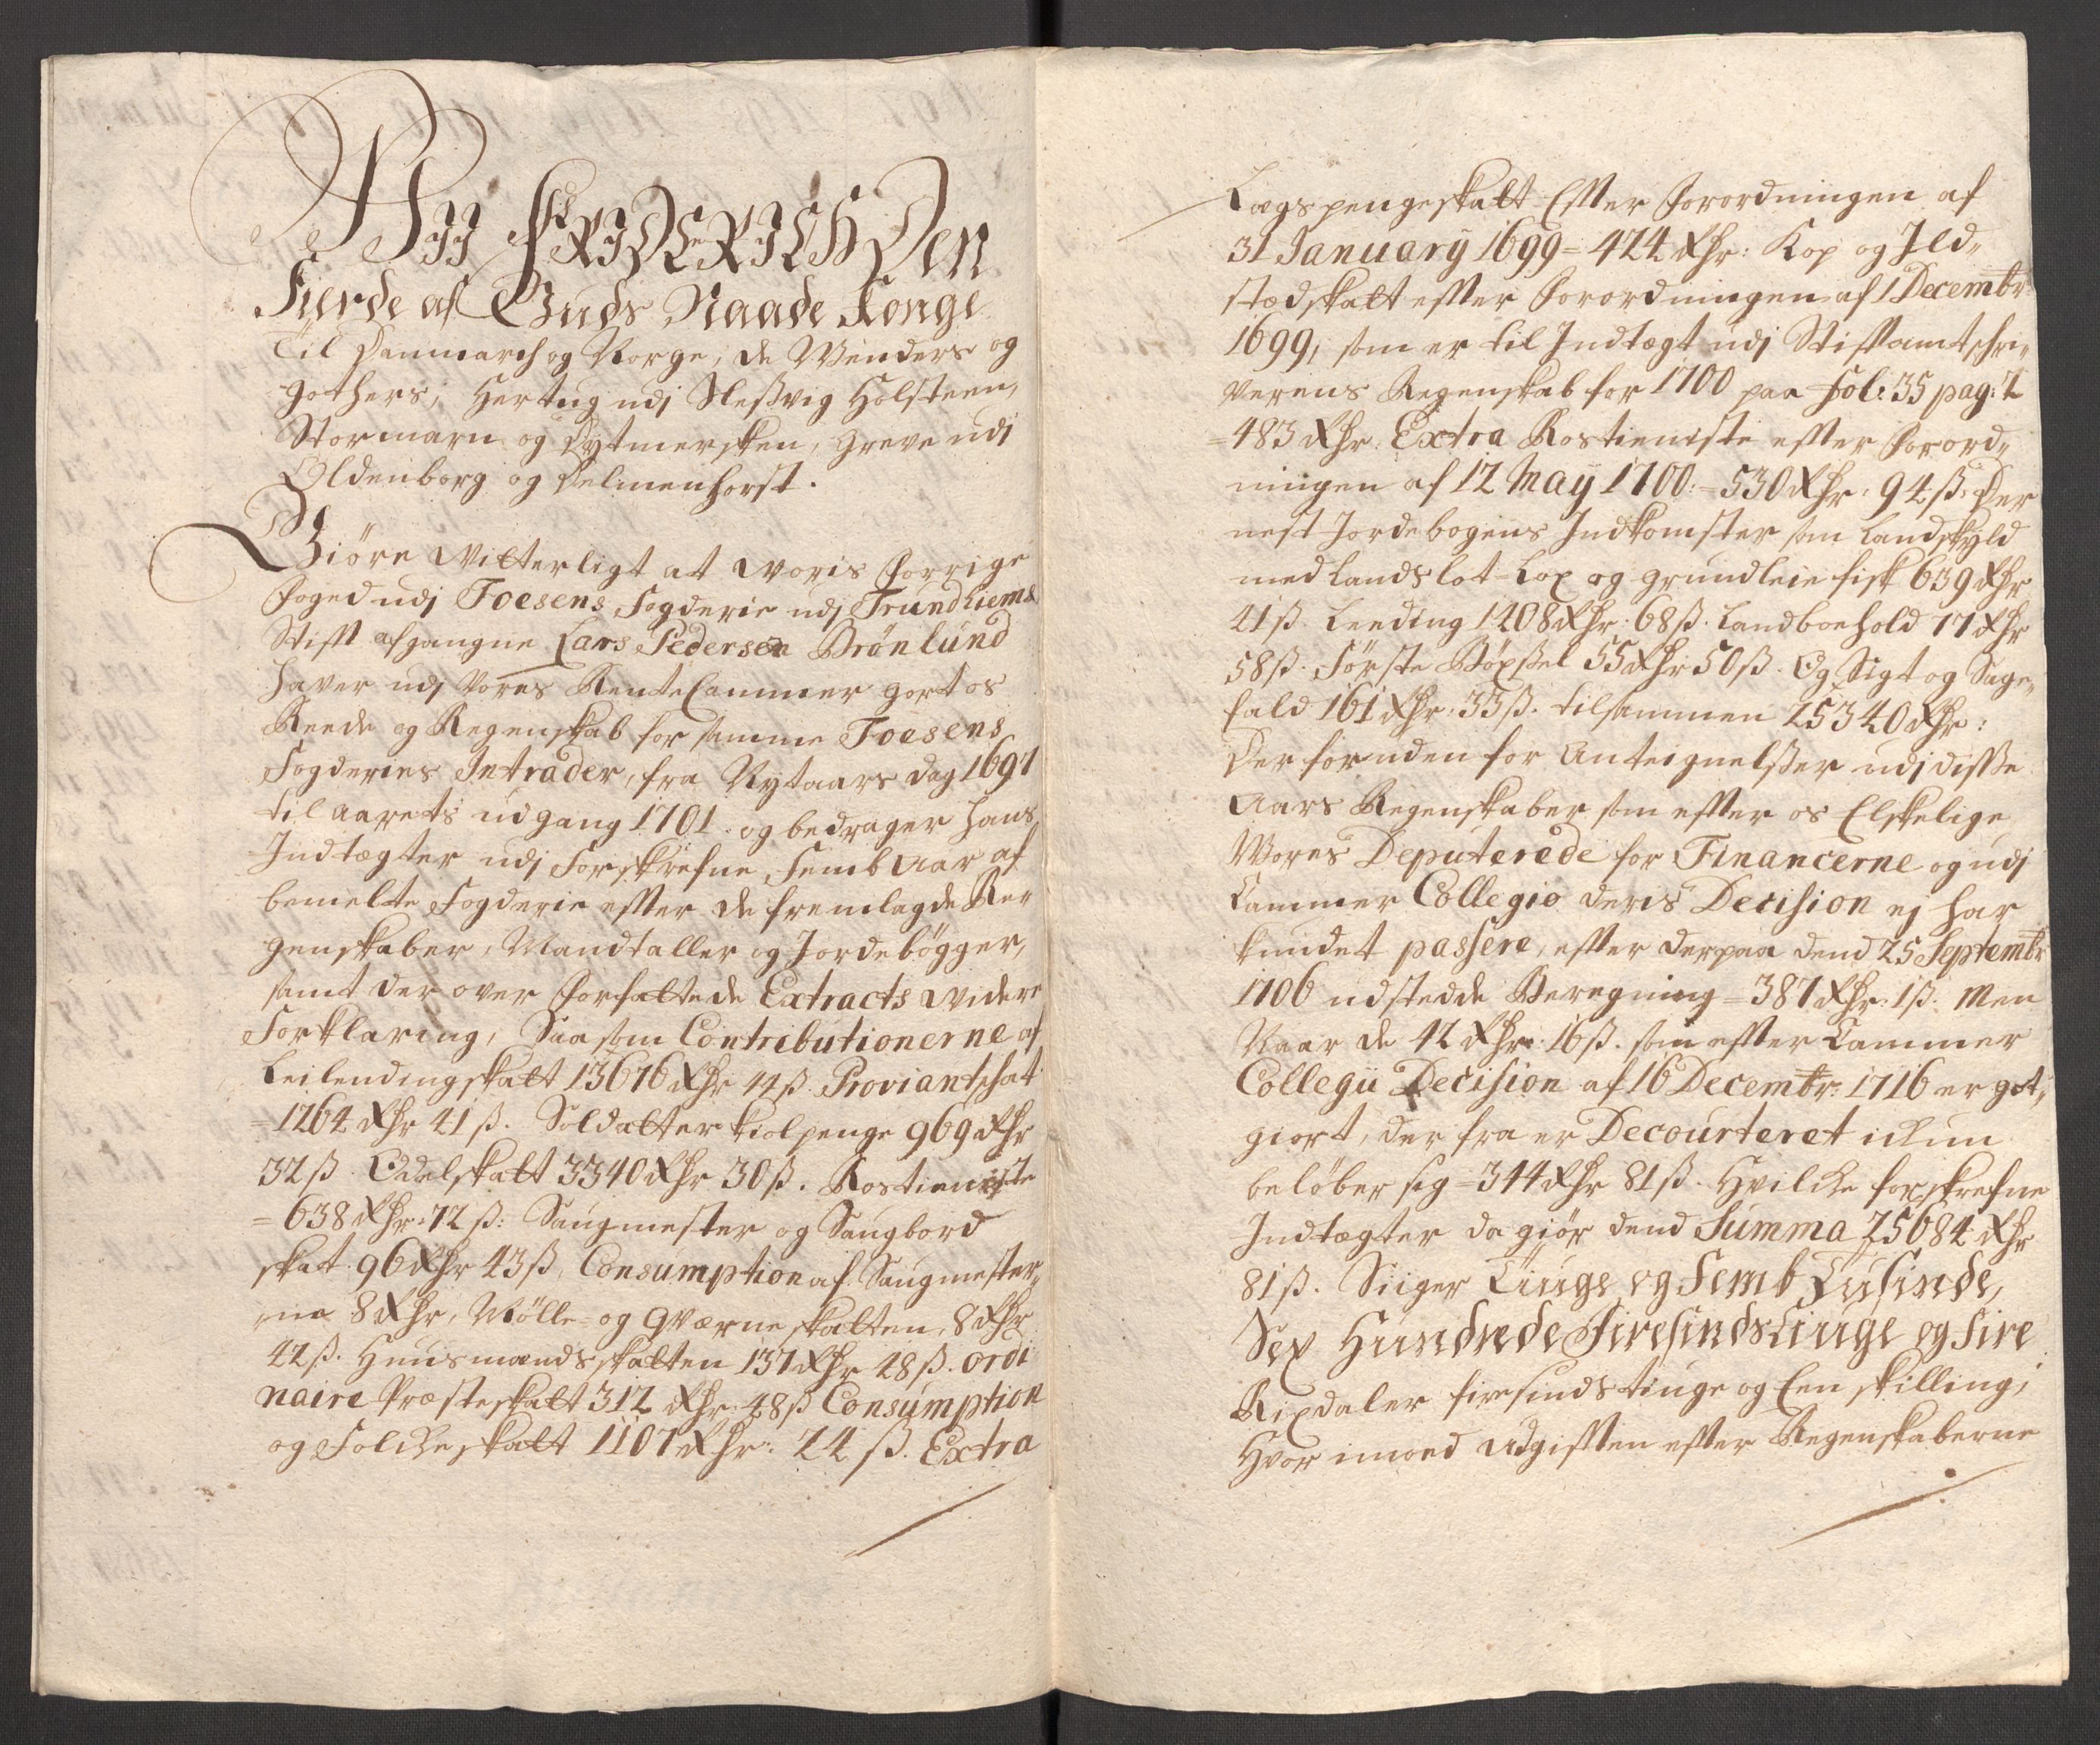 Wii FRIDERICH Den
Fierde af Guds Naade Konge
Til Danmarch og Norge, de Wenders og
Gothers, Hertug udj Sleßvig Holsteen,
Stormarn og Dytmersken, Greve udi
Oldenborg og Delmenhorst.
Giöre Witterligt at Woris forrige
foged udj Foesens Fogderie udj Trundhiems
Stift afgangne Lars Pedersen Brönlund
haver udj Vores RenteCammer gort os
Reede og Regenskab for samme Foesens
Fogderies Intrader, fra Nytaars dag 1697
til aarets udgang 1701. og bedrager hans
Indtægter udj Forskrefne Femb Aar af
bemelte Fogderie efter de fremlagde Re¬
genskaber, Mandtaller og Jordebögger,
samt der over forfattede Extracts widere
Forklaring, Saasom Contributionerne af
Leilendingskatt 13676 Rdr 44 ß. Proviantschat
=1264 Rdr 41 ß. Soldatter kiolpenge 969 Rdr
32 ß. Odelskatt 3340 Rdr 30 ß. Rostieniste
=638 Rdr: 72 ß: Saugmester og Saugbord
skat 96 Rdr 43 ß, Consumption af Saugmester,,
ne 8 Rdr, Mölle- og Qværneskatten 8 Rdr
42 ß. Huusmandsskatten 137 Rdr 28 ß. Ordi
naire Præsteskatt 312 Rdr: 48 ß Consumption
og Folcheskatt 1107 Rdr: 24 ß. Extra
Lægspengeskatt Efter Forordningen af
31 January 1699 = 424 Rdr: Kop og Ild,,
stædskatt efter Forordningen af 1 Decembr
1699, som er til Indtægt udj Stiftamtschri,,
verens Regenskab for 1700 paa Fol: 35 pag: 2
=483 Rdr. Extra Rostieniste efter Forord,,
ningen af 12 May 1700: =530 Rdr: 94 ß: Der
nest Jordebogens Indkomster som Landskyld
med Landslot- Lox og grundleie fisk 639 Rdr
41 ß. Leeding 1208 Rdr: 68 ß. Landboehold 77 Rdr
58 ß. Förste Böxßel 55 Rdr 50 ß. Og Sigt og Sage,,
fald 161 Rdr: 33 ß. tilsammen 25340 Rdr:
Der foruden for Anteignelßer udj disse
Aars Regenskaber som efter os Elskelige
Wores Deputerede for Financerne og udj
Cammer Collegio deris Decision ej har
kundet passere, efter derpaa dend 25 Septembr
1706 udstedde Beregning =387 Rdr: 1 ß. Men
Naar de 42 Rdr: 16 ß. som efter Cammer
Collegii Decision af 16 Decembr: 1716 er got,,
giort, der fra er Decourteret ickun
belöber sig =344 Rdr 81 ß. Hvilche forskrefne
Indtægter da giör dend Summa 25684 Rdr
81 ß. Siiger Tiuge og Femb Tusinde,
Sex Hundrede Firesindstiuge og Fire
Rixdaler firesinds tiuge og Een skilling,
Hvor imoed Udgiften efter Regenskaberne